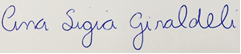 Ana Ligia Giraldeli